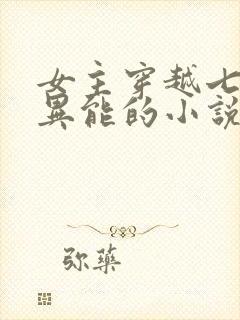 女主穿越七
異能的小説
弥藥